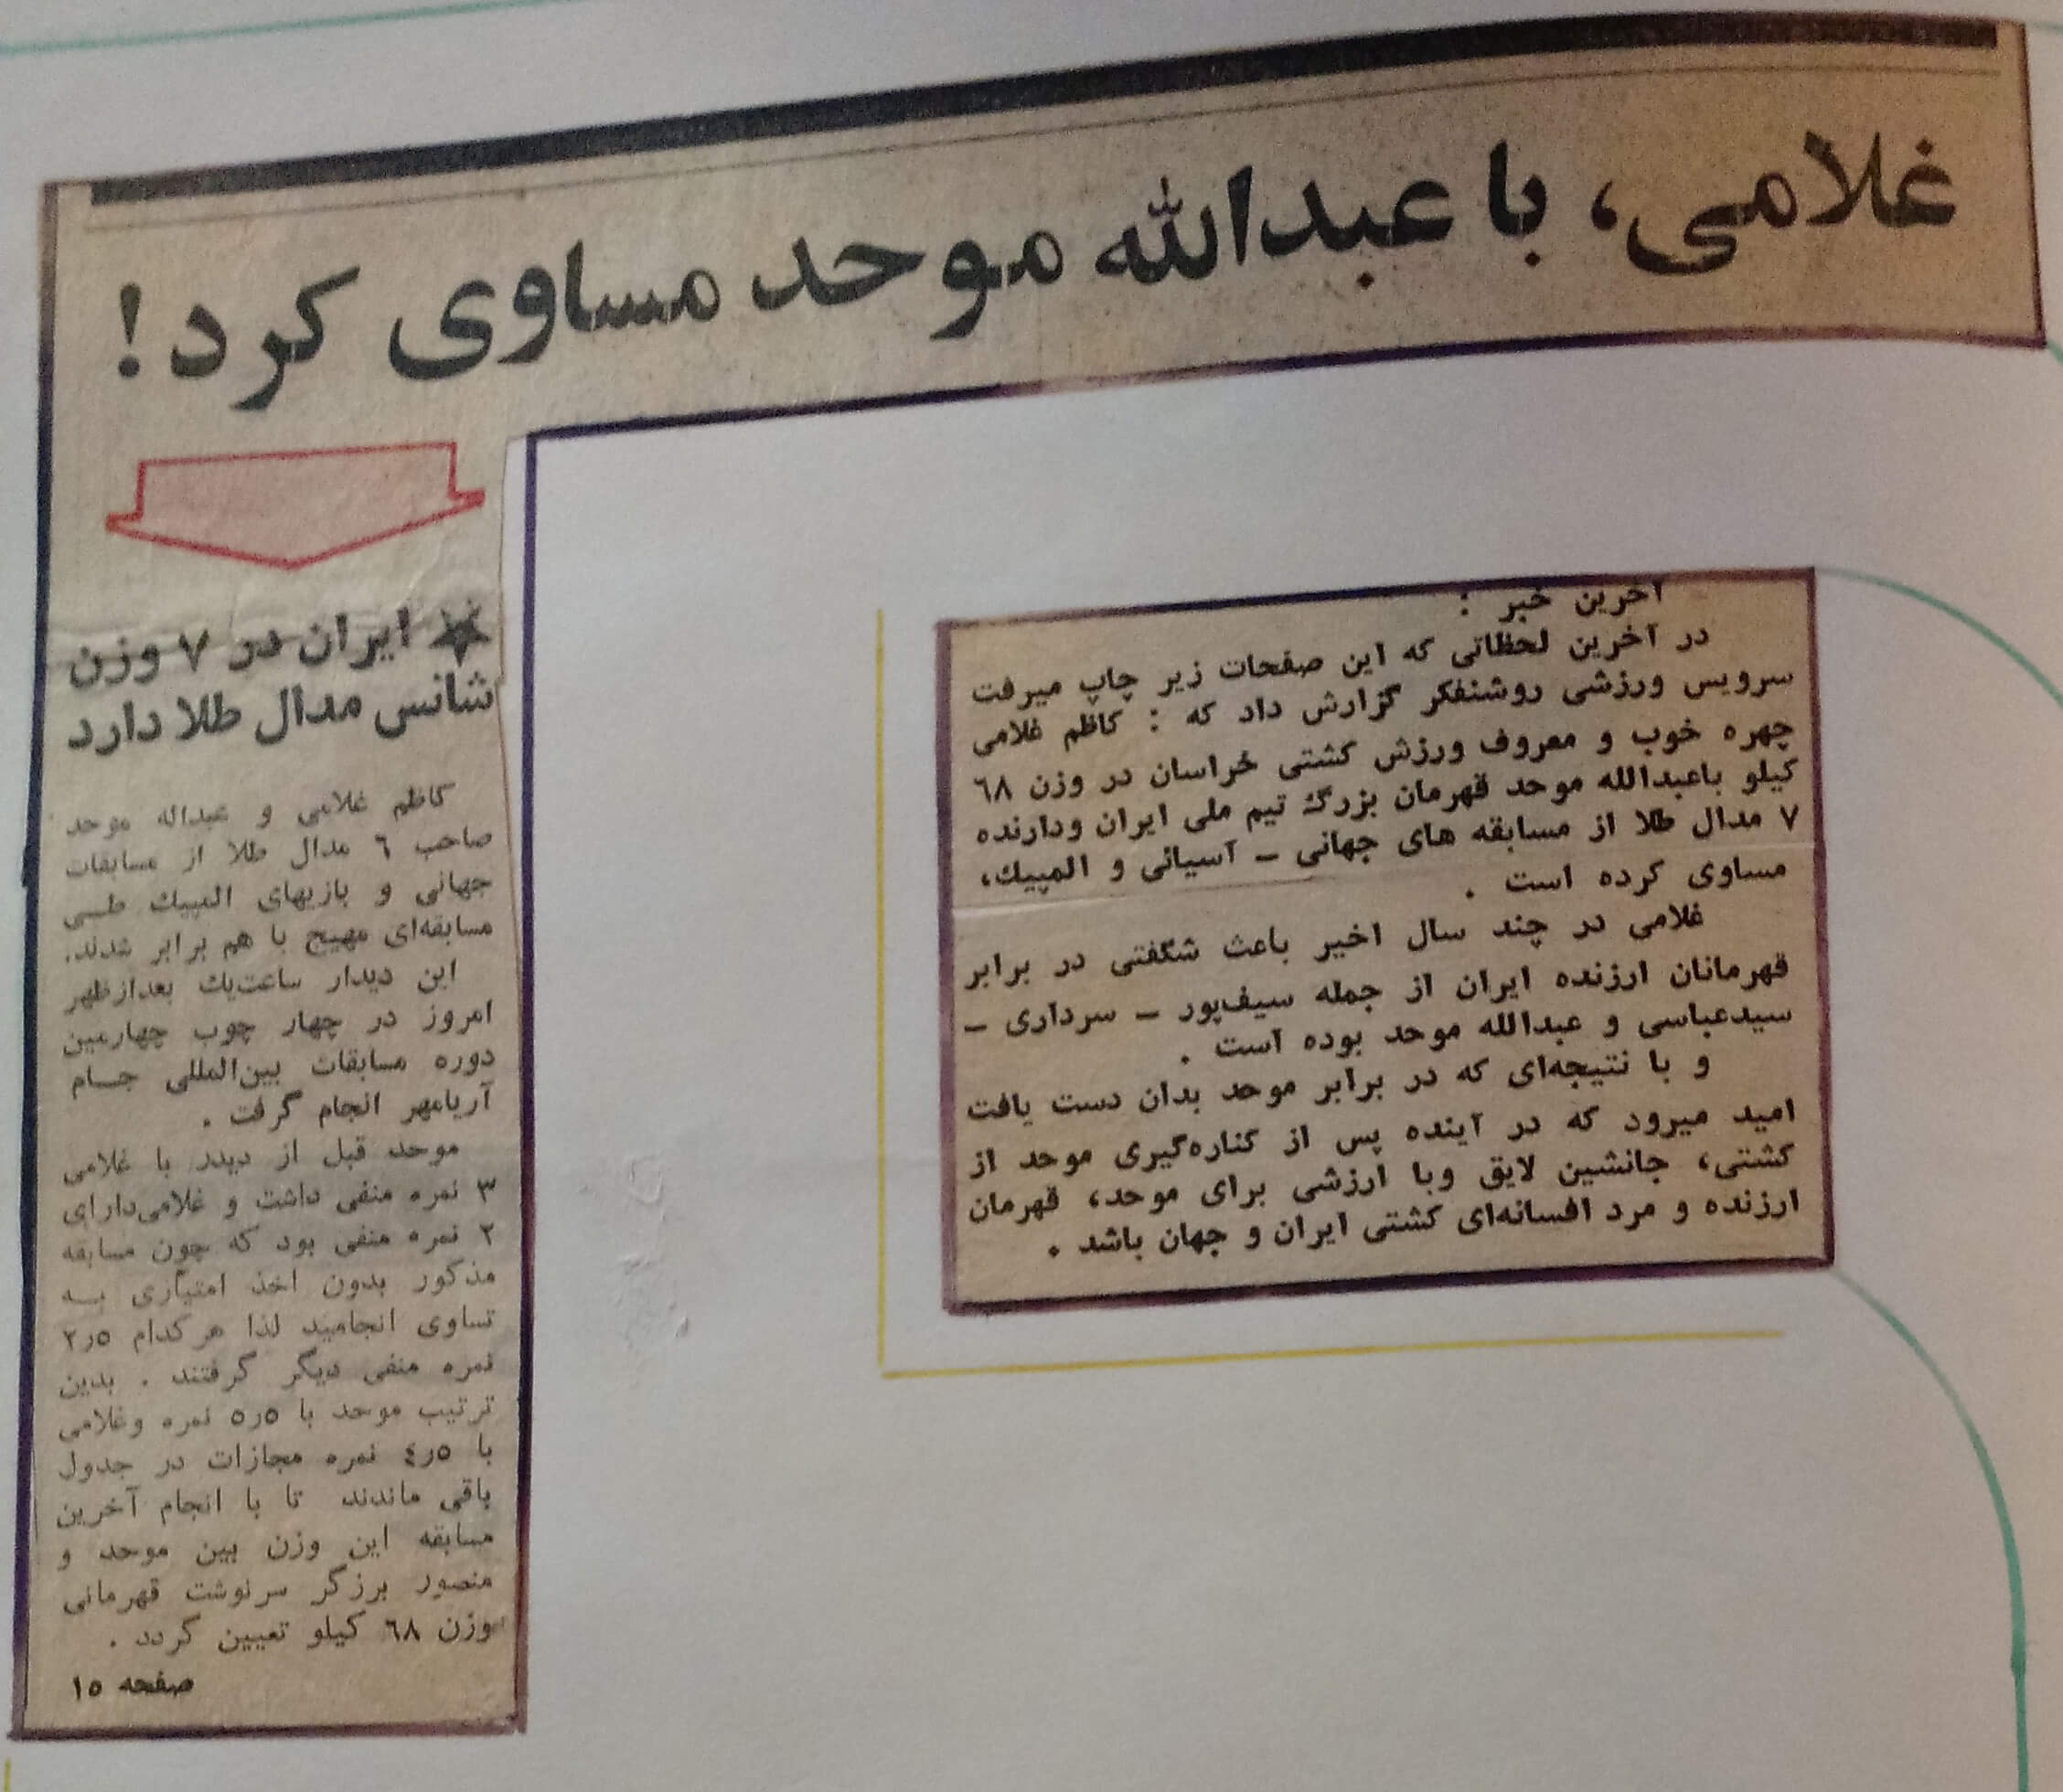 غلامی، با عبدالله موحد مساوی کرد!
★ ایران در ۷ وزن
شانس مدال طلا دارد
کاظم غلامی و عبداله موحد
صاحب ٦ مدال طلا از مسابقات
جهانی و بازیهای المپیك طی
مسابقه‌ای مهیج با هم برابر شدند.
این دیدار ساعت‌یك بعدازظهر
امروز در چهار چوب چهارمین
دوره مسابقات بین‌المللی جام
آریامهر انجام گرفت .
موحد قبل از دیدر با غلامی
۳ نمره منفی داشت و غلامی‌دارای
۲ نمره منفی بود که چون مسابقه
مذکور بدون اخذ امتیازی به
تساوی انجامید لذا هرکدام ۲ر۵
نمره منفی دیگر گرفتند . بدین
ترتیب موحد با ۵ر۵ نمره وغلامی
با ٤ر۵ نمره مجازات در جدول
باقی ماندند تا با انجام آخرین
مسابقه این وزن بین موحد و
منصور برزگر سرنوشت قهرمانی
وزن ٦۸ کیلو تعیین گردد .
صفحه ۱۵
آخرین خبر :
در آخرین لحظاتی که این صفحات زیر چاپ میرفت
سرویس ورزشی روشنفکر گزارش داد که : کاظم غلامی
چهره خوب و معروف ورزش کشتی خراسان در وزن ٦۸
کیلو باعبدالله موحد قهرمان بزرگ تیم ملی ایران ودارنده
۷ مدال طلا از مسابقه های جهانی – آسیائی و المپیك،
مساوی کرده است .
غلامی در چند سال اخیر باعث شگفتی در برابر
قهرمانان ارزنده ایران از جمله سیف‌پور – سرداری –
سیدعباسی و عبدالله موحد بوده است .
و با نتیجه‌ای که در برابر موحد بدان دست یافت
امید میرود که در آینده پس از کناره‌گیری موحد از
کشتی، جانشین لایق وبا ارزشی برای موحد، قهرمان
ارزنده و مرد افسانه‌ای کشتی ایران و جهان باشد .